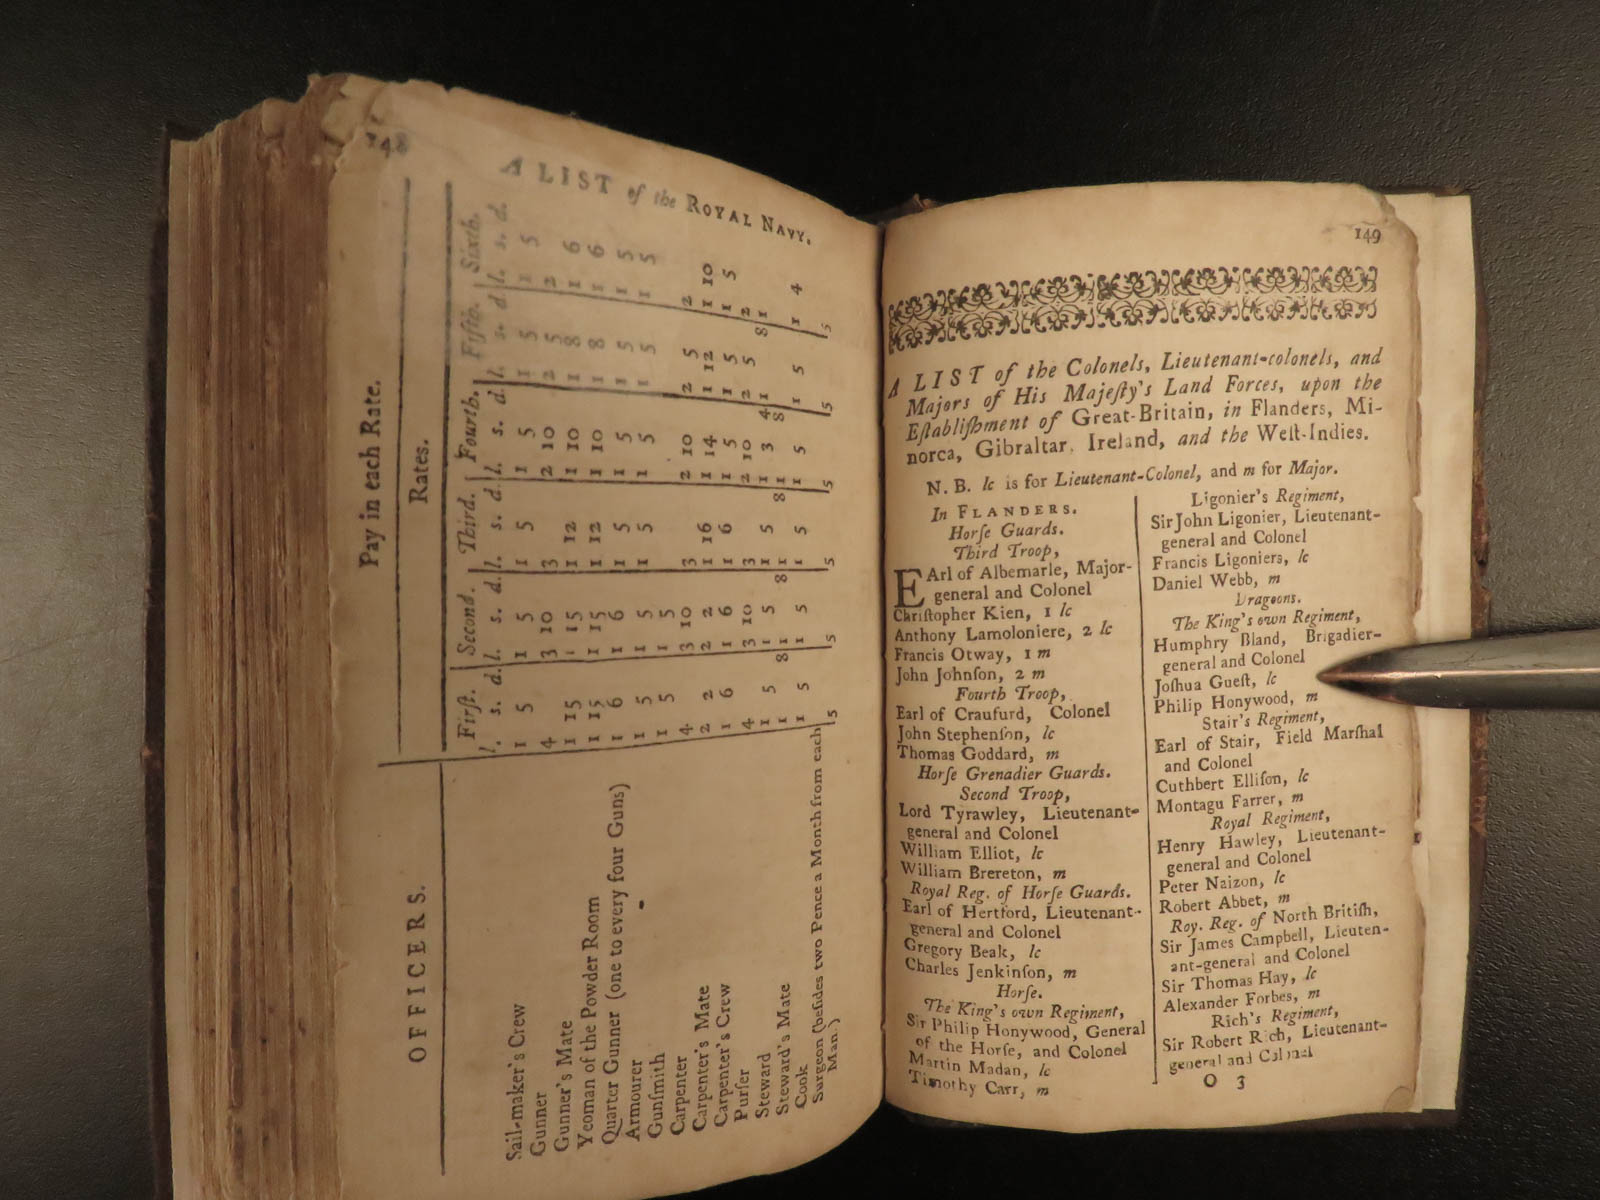 148
A LIST of the ROYAL NAVY.
Pay in each Rate.
Rates.
OFFICERS.
First. Second. Third. Fourth. Fifth. Sixth.
l. s. d. l. s. d. l. s. d. l. s. d. l. s. d l. s. d.
Sail-maker's Crew 1 5 1 5 1 5 1 5 1 5 1 5
Gunner 4 3 10 3 2 10 2 5 2
Gunner's Mate 1 15 1 15 1 12 1 10 1 8 1 6
Yeoman of the Powder Room 1 15 1 15 1 12 1 10 1 8 1 6
Quarter Gunner (one to every four Guns) 1 6 1 6 1 5 1 5 1 5 1 5
Armourer 1 5 1 5 1 5 1 5 1 5 1 5
Gunſmith 1 5 1 5
Carpenter 4 3 10 3 2 10 2 5 2
Carpenter's Mate 2 2 2 2 1 16 1 14 1 12 1 10
Carpenter's Crew 1 6 1 6 1 6 1 5 1 5 1 5
Purſer 4 3 10 3 2 10 2 5 2
Steward 1 5 1 5 1 5 1 3 4 1 8 1
Steward's Mate 8 1 8 1 8 1 8
Cook 1 5 1 5 1 5 1 5 1 5 1 4
Surgeon (beſides two Pence a Month from each 5 5 5 5 5 5
Man.)
149
A LIST of the Colonels, Lieutenant-colonels, and
Majors of His Majeſty's Land Forces, upon the
Eſtabliſhment of Great-Britain, in Flanders, Mi-
norca, Gibraltar, Ireland, and the Weſt-Indies.
N. B. lc is for Lieutenant-Colonel, and m for Major.
In FLANDERS.
Horſe Guards.
Third Troop,
EArl of Albemarle, Major-
general and Colonel
Chriſtopher Kien, 1 lc
Anthony Lamoloniere, 2 lc
Francis Otway, 1 m
John Johnſon, 2 m
Fourth Troop,
Earl of Craufurd, Colonel
John Stephenſon, lc
Thomas Goddard, m
Horſe Grenadier Guards.
Second Troop,
Lord Tyrawley, Lieutenant-
general and Colonel
William Elliot, lc
William Brereton, m
Royal Reg. of Horſe Guards.
Earl of Hertford, Lieutenant-
general and Colonel
Gregory Beak, lc
Charles Jenkinſon, m
Horſe.
The King's own Regiment,
Sir Philip Honywood, General
of the Horſe, and Colonel
Martin Madan, lc
Timothy Carr, m
Ligonier's Regiment,
Sir John Ligonier, Lieutenant-
general and Colonel
Francis Ligoniers, lc
Daniel Webb, m
Dragoons.
The King's own Regiment,
Humphry Bland, Brigadier-
general and Colonel
Joſhua Gueſt, lc
Philip Honywood, m
Stair's Regiment,
Earl of Stair, Field Marſhal
and Colonel
Cuthbert Elliſon, lc
Montagu Farrer, m
Royal Regiment,
Henry Hawley, Lieutenant-
general and Colonel
Peter Naizon, lc
Robert Abbet, m
Roy. Reg. of North Britiſh,
Sir James Campbell, Lieuten-
ant-general and Colonel
Sir Thomas Hay, lc
Alexander Forbes, m
Rich's Regiment,
Sir Robert Rich, Lieutenant-
general and Colonel
O 3